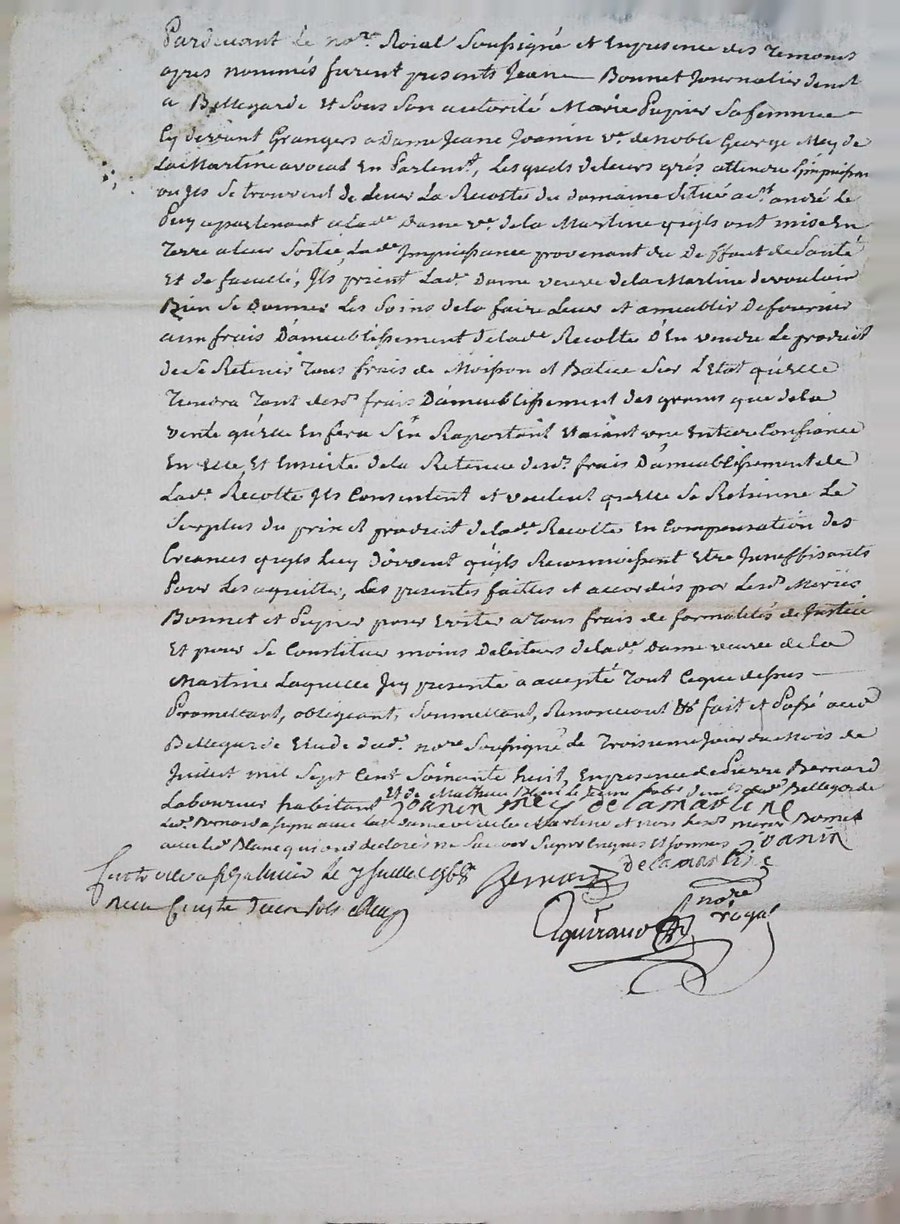 Pardevant le nore. Roial Soussigné et Enpresence des Temoins
apres nommés furent presents Jeane Bonnet Journalier demt
a Bellegarde et sous son autorité Marie Pupier sa femme
Cy devant Grangers a Dame Jeane Joanin ve. de noble George Mey de
La Martine avocat En Parlemt. Lesquels de leurs grés attendu L'impuissance
ou jls se trouvent de Lever La Recolte du domaine situé a st. andré Le
Puy appartenant a Lade. Dame ve. de la Martine qu'jls ont mise En
Terre a leur Sortie, Lade. Jmpuissance provenant du Deffaut de Santé
Et de faculté, Jls prient Lade. Dame veuve de la Martine de vouloir
Bien se Donner Les Soins de la faire Lever et ameublir De fournir
aux frais D'ameublissement de lade. Recolte D'En vendre Le produit
de se Retenir Tous frais de Moisson et Batue Sur L'Etat qu'elle
Tiendra Tant desds. frais D'ameublissement des grains que de la
vente qu'elle En fera S'en Raportant Et aiant une Entiere Confiance
En elle, Et Ensuite de la Retenue desds. frais D'ameublissement de
Lade. Recolte Jls Consentent et veulent qu'elle Se Retienne Le
Surplus du prix et produit de lade. Recolte En Compensation des
Creances qu'jls Luy Doivent qu'jls Reconnoissent Etre Jnsuffisants
Pour Les aquitter, Les presentes faites et accordées par Lesds. Mariés
Bonnet et Pupier pour Eviter a Tous frais de formalités de Justice
Et pour Se Constituer moins Debiteurs de lade. Dame veuve de la
Martine Laquelle Jcy presente a accepté Tout Ce que dessus
Promettant, obligeant, Soumettant, Renonceant &c fait et Passé aud
Bellegarde Etude dudt. nore Soussigné Le Troisieme Jour du Mois de
Juillet mil Sept Cent Soixante huit, En presence de Pierre Bernard
Laboureur habitant Et de Mathieu Blanc le Jeune demt. Bellegarde
joanin mey delamartine
Led. Bernard a signé avec lade dame ve. de la Martine et non lesds mariés Bonnet
avec led Blanc qui ont declarés ne Savoir Signer Enquis Et Sommés joanin
delamartine
Bernard
Controllé a st Galmier le 7 Juillet 1768
Reçu
nore
royal